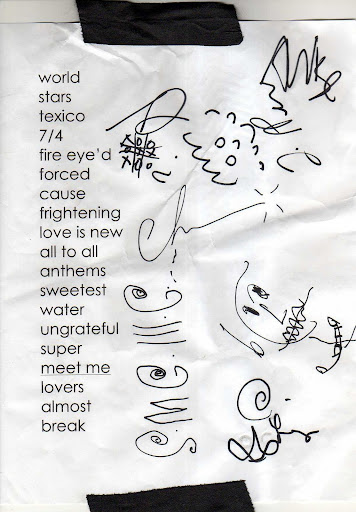 world
stars
texico
7/4
fire eye'd
forced
cause
frightening
love is new
all to all
anthems
sweetest
water
ungrateful
super
meet me
lovers
almost
break